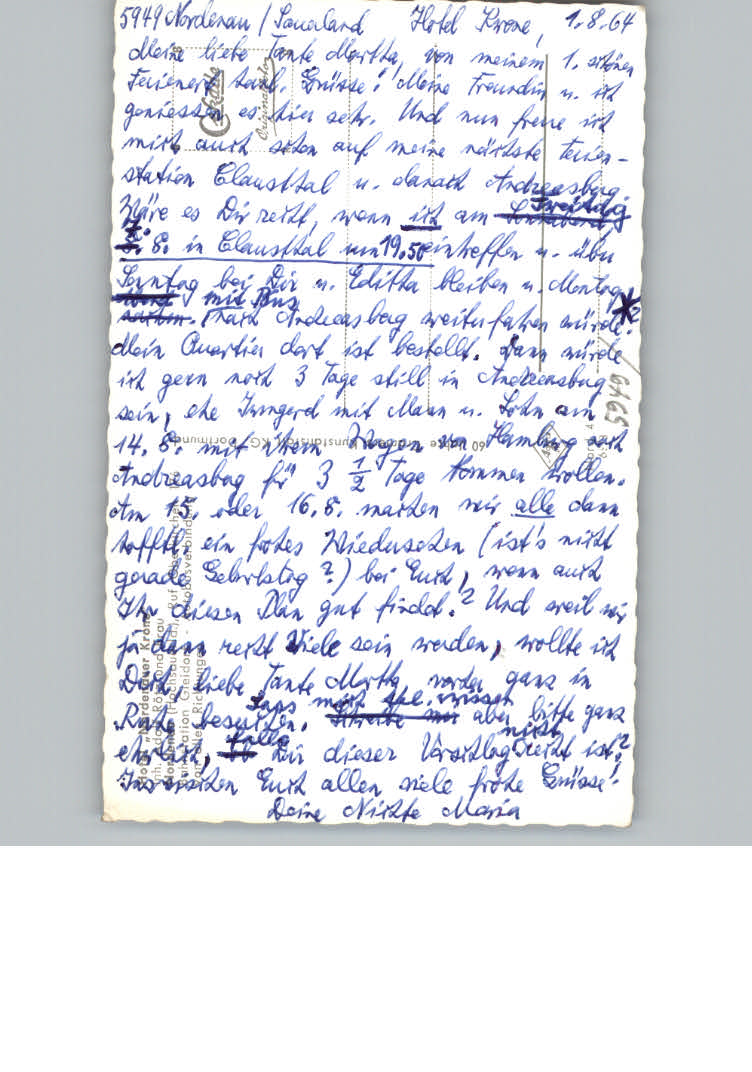 5949 Nordenau / Sauerland Hotel Krone, 1.8.64
Meine liebe Tante Martha, von meinem 1. schönen
Ferienort herzl. Grüsse! Meine Freundin u. ich
geniessen es hier sehr. Und nun freue ich
mich auch schon auf meine nächste Ferien-
station Clausthal u. danach Andreasberg.
Wäre es Dir recht, wenn ich am Freitag
7. 8. in Clausthal um 19.50 eintreffen u. über
Sonntag bei Dir u. Editha bleiben u. Montag
mit Bus
nach Andreasberg weiterfahren würde?
Mein Quartier dort ist bestellt. Dann würde
ich gern noch 3 Tage still in Andreasberg
sein, ehe Irmgard mit Mann u. Sohn am
14. 8. mit ihrem Wagen von Hamburg nach
Andreasberg für 3 1/2 Tage kommen wollen.
Am 15. oder 16.8. machen wir alle dann
hofftl. ein frohes Wiedersehen (ist's nicht
gerade Geburtstag?) bei Euch, wenn auch
Ihr diesen Plan gut findet? Und weil wir
ja dann recht viele sein werden, wollte ich
Dich, liebe Tante Martha, vorher ganz in
Ruhe besuchen. aber bitte ganz
ehrlich, falls Dir dieser Vorschlag nicht recht ist!
Inzwischen Euch allen viele frohe Grüsse!
Deine Nichte Maria
Cekade
Originalfoto
Kunstanstalt KG, Dortmund
5949
Hotel „Nordenauer Krone"
Nordenau (Hochsauerland)